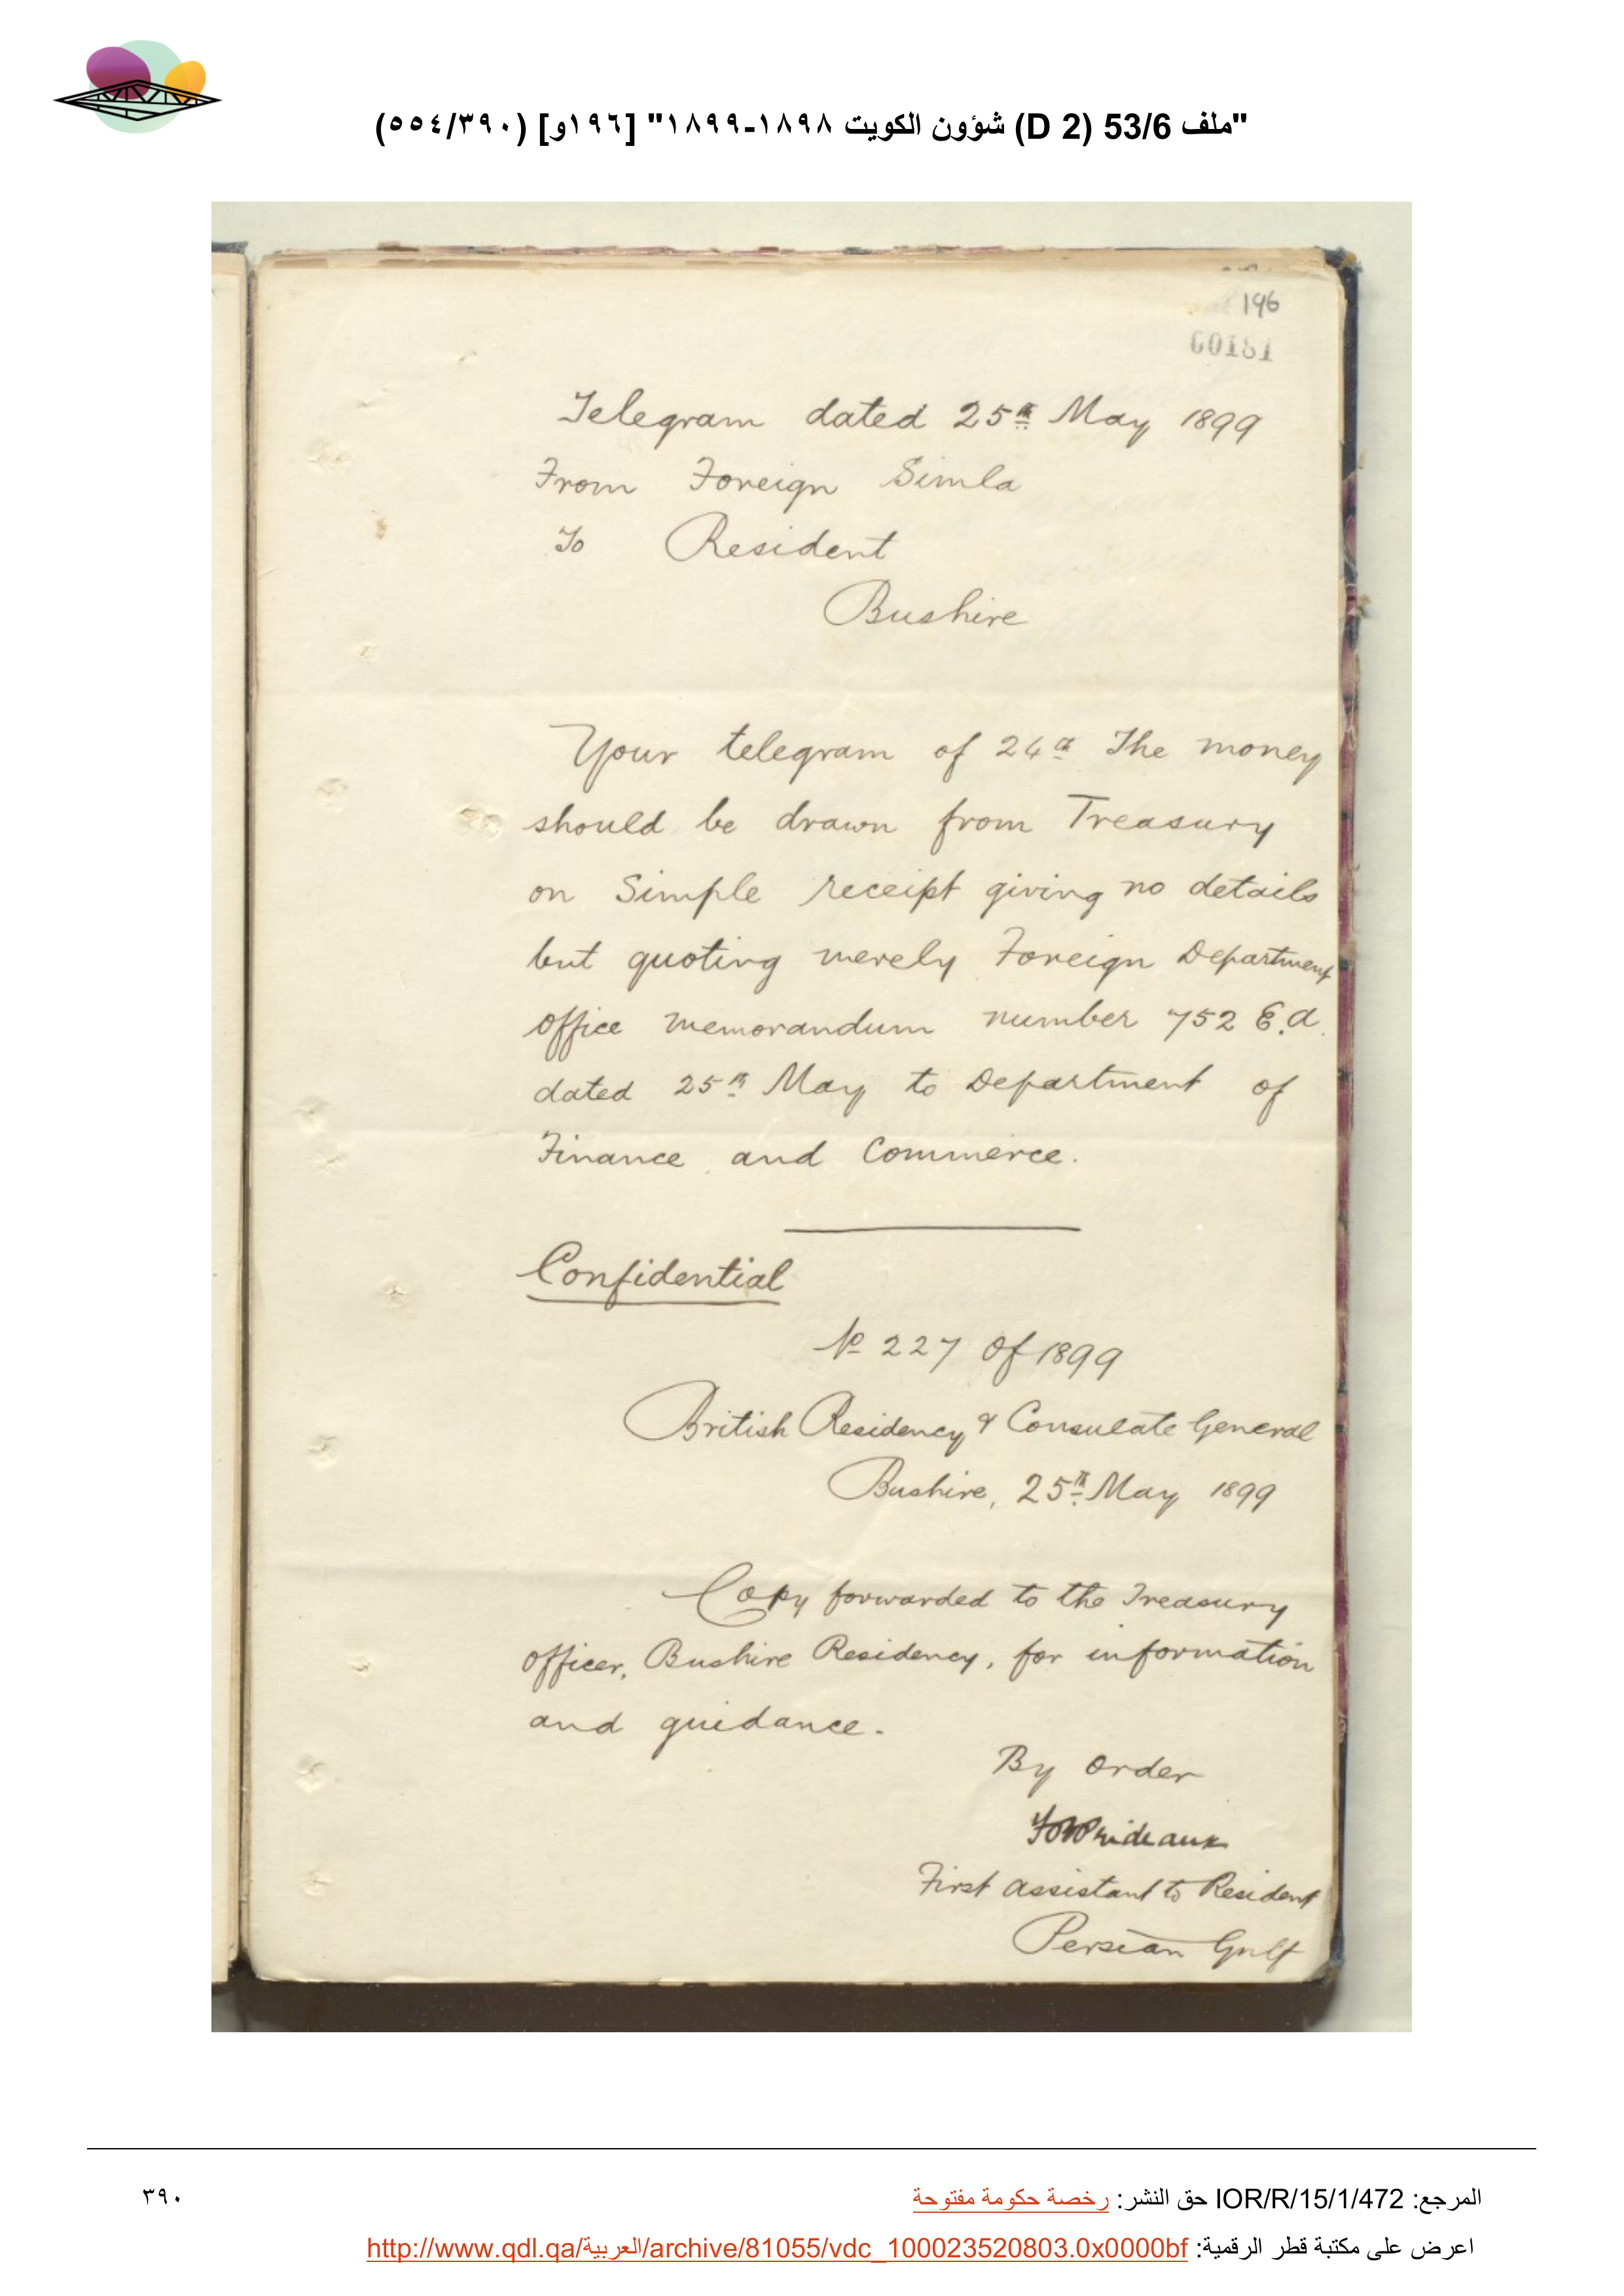 "ملف 53/6 (D 2) شؤون الكويت ١٨٩٨-١٨٩٩" [١٩٦و] (٥٥٤/٣٩٠)
196
00181
Telegram dated 25th May 1899
From Foreign Simla
To Resident
Bushire
Your telegram of 24th The money
should be drawn from Treasury
on Simple receipt giving no details
but quoting merely Foreign Department
Office memorandum number 752 E.A.
dated 25th May to Department of
Finance and Commerce.
Confidential
No 227 of 1899
British Residency & Consulate General
Bushire, 25th May 1899
Copy forwarded to the Treasury
Officer, Bushire Residency, for information
and guidance.
By Order
Prideaux
First Assistant to Resident
Persian Gulf
المرجع: IOR/R/15/1/472 حق النشر: رخصة حكومة مفتوحة
٣٩٠
اعرض على مكتبة قطر الرقمية: http://www.qdl.qa/العربية/archive/81055/vdc_100023520803.0x0000bf